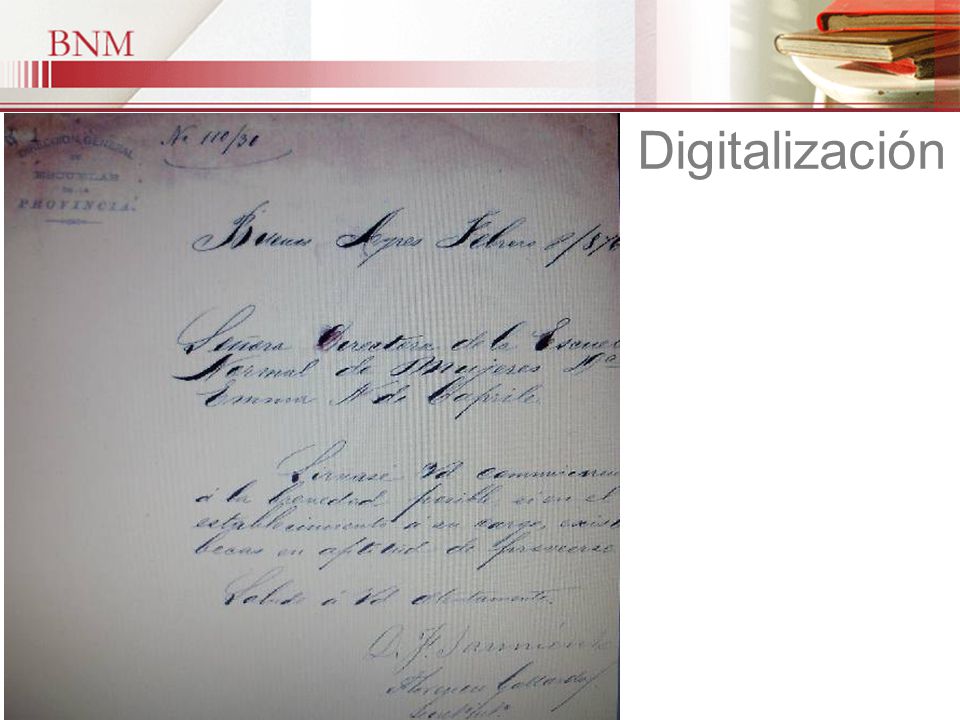 BNM
Digitalización
DIRECCION GENERAL
DE
ESCUELAS
DE LA
PROVINCIA.
No 110/30
Buenos Ayres Febrero 8/876
Señora Directora de la Escue
Normal de Mujeres Da
Emma N. de Caprile.
Sirvase Vd comunicarme
á la brevedad posible, si en el
establecimiento á su cargo, exist
becas en aptitud de proveerse
Saludo á Vd atentamente.
D. F. Sarmiento